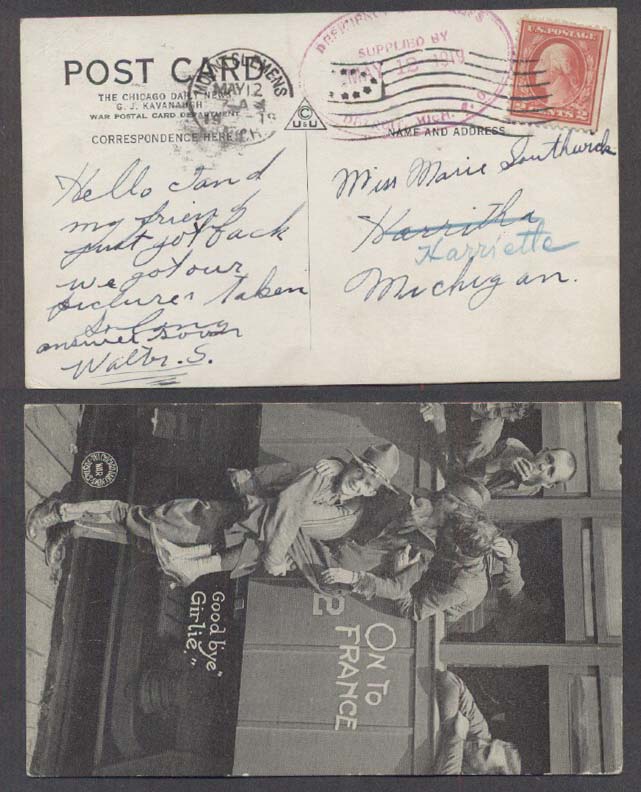 POST CARD
THE CHICAGO DAILY NEWS
G. J. KAVANAUGH
WAR POSTAL CARD DEPARTMENT
CORRESPONDENCE HERE
MOUNT CLEMENS
MAY 12
SUPPLIED BY
MAY 13 1919
DETROIT, MICH.
U.S. POSTAGE
2 CENTS 2
C
U&U
NAME AND ADDRESS
Hello I and
my friend
just got back
we got our
pictures taken
So Long
answer soon
Walter. S.
Miss Marie Southwick
Harritha
Harriette
Michigan.
WAR
Good bye
Girlie."
2
ON TO
FRANCE